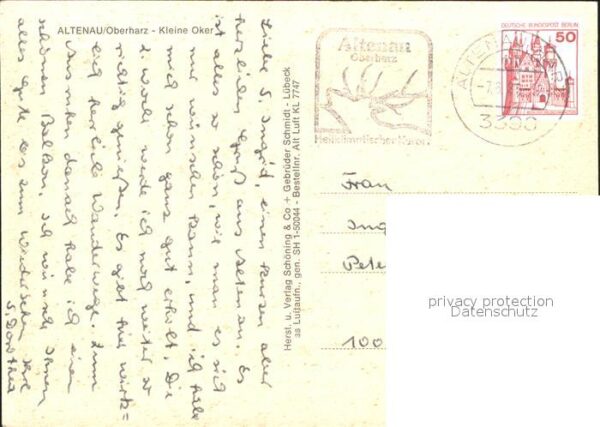 ALTENAU/Oberharz - Kleine Oker
Liebe S. Ingrid, einen kurzen aber
herzlichen Gruß aus Altenau. Es
ist alles so schön, wie man es sich
nur wünschen kann, und ich habe
mich schon ganz gut erholt. Die
2. Woche werde ich noch weiter so
richtig genießen. Es gibt hier wirk=
lich herrliche Wanderwege. Zum
Ausruhen danach habe ich einen
schönen Balkon. Ich wünsch Ihnen
alles Gute bis zum Wiedersehen Ihre
S. Dorothea
Herst. u. Verlag Schöning & Co + Gebrüder Schmidt - Lübeck
as Luftaufn., gen. SH 1-50044 - Bestellnr. Alt Luft KL 7747
Altenau
Oberharz
Heilklimatischer Kurort
ALTENAU
3396
DEUTSCHE BUNDESPOST BERLIN
50
Frau
Ing
Pete
100
privacy protection
Datenschutz